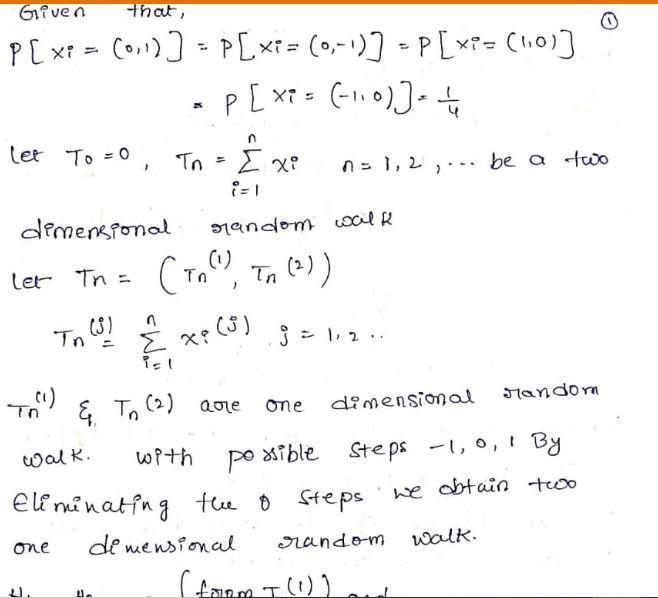 Given that,
①
P[xi = (0,1)] = P[xi = (0,-1)] = P[xi = (1,0)]
= P[xi = (-1,0)] = 1/4
let To = 0, Tn = Σ_{i=1}^{n} xi n = 1, 2, ... be a two
dimensional random walk
let Tn = (Tn^(1), Tn^(2))
Tn^(j) = Σ_{i=1}^{n} xi^(j) j = 1, 2 ..
Tn^(1) & Tn^(2) are one dimensional random
walk. with possible steps -1, 0, 1 By
Eliminating the 0 steps we obtain two
one dimensional random walk.
(from T^(1)) and